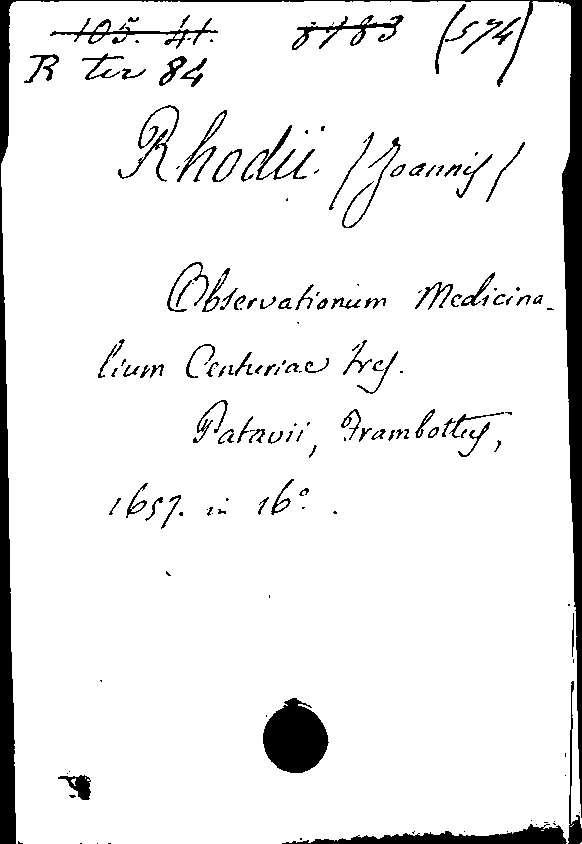 105. 41. 8783 (574)
R ter 84
Rhodii (Joannis)
Observationum Medicina-
lium Centuriae tres.
Patavii, Frambottus,
1657. in 16°.